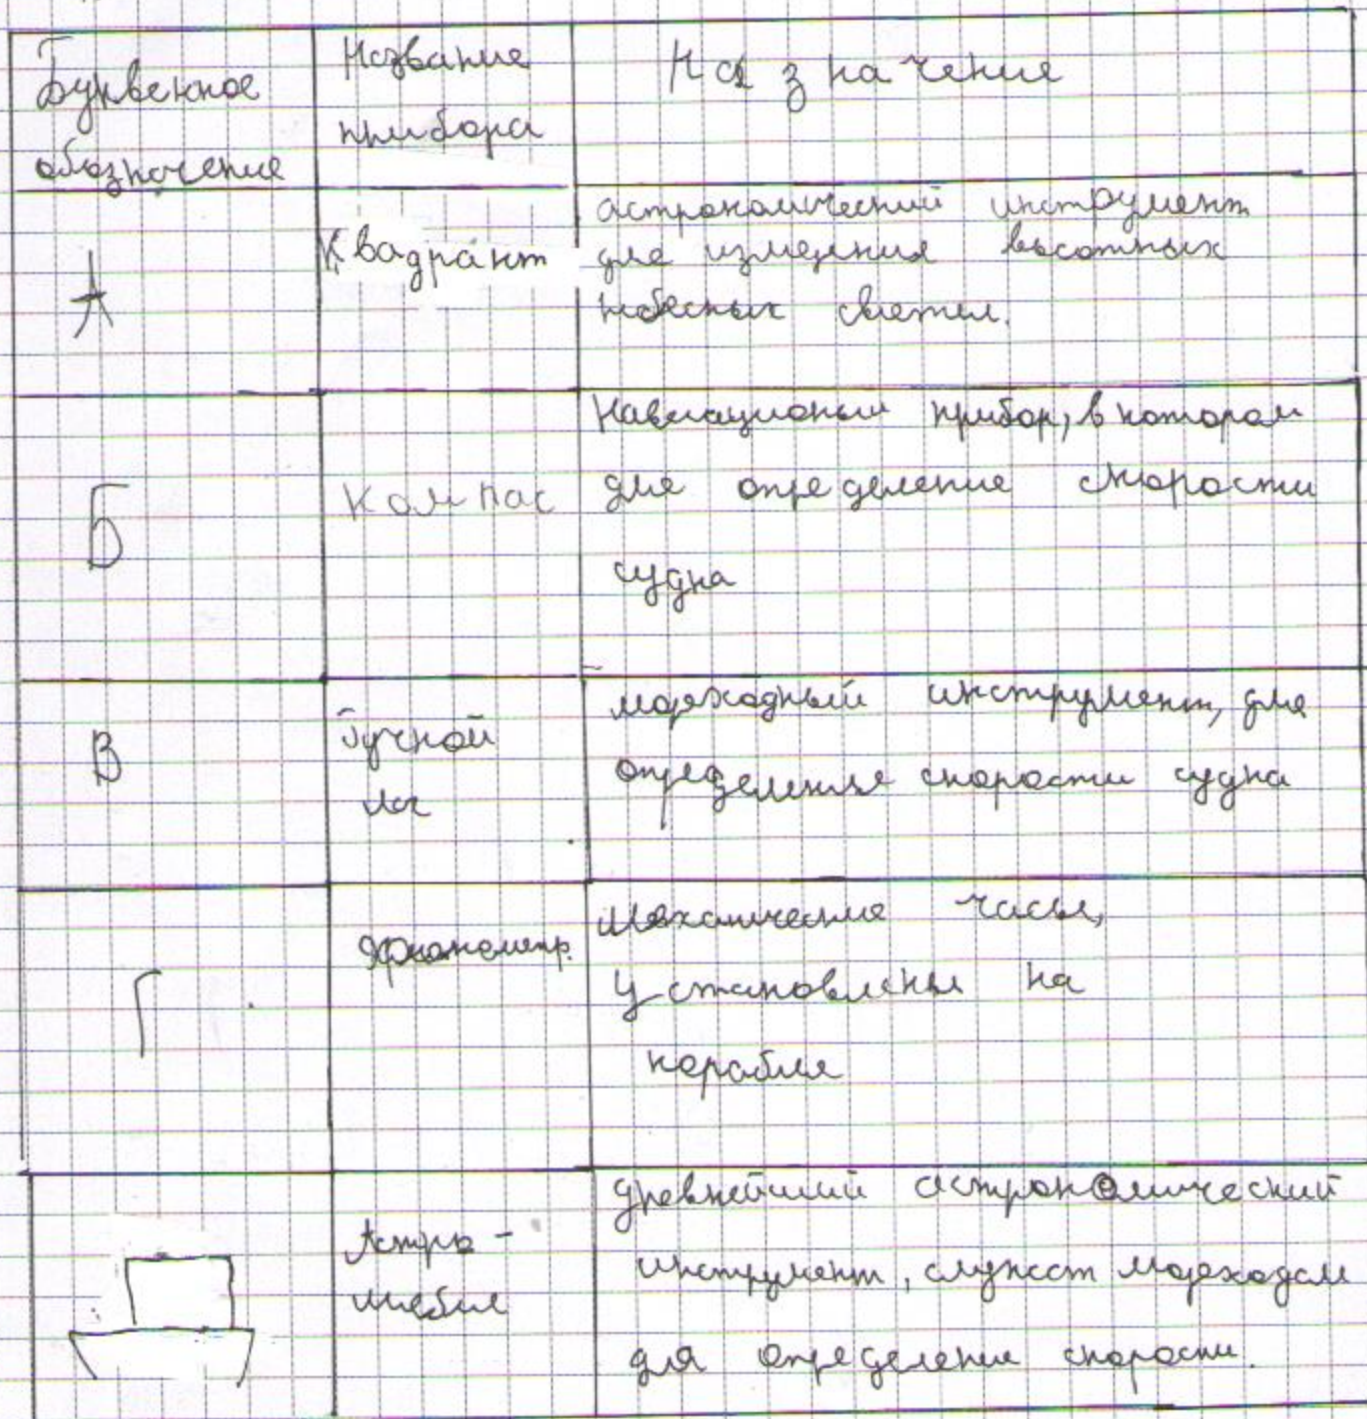 Буквенное
обозночение
Название
прибора
Назначение
А
Квадрант
астрономический инструмент
для измерения высотных
небесных светил.
Б
Компас
Навигационый прибор, в котором
для определение скорости
судна
В
ручной
лог
мореходный инструмент, для
определенья скорости судна
Г
хронометр.
Механические часы,
установлены на
корабле
Д
Астро-
лебил
древнейший астрономический
инструмент, служест мореходам
для определения скорости.